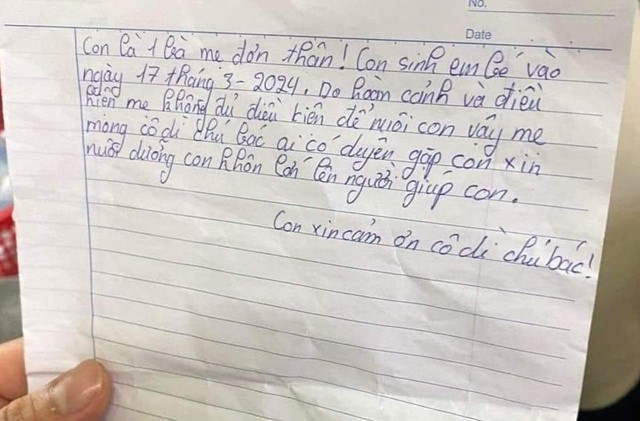 No.
Date
Con là 1 bà mẹ đơn thân! Con sinh em bé vào
ngày 17 tháng 3-2024. Do hoàn cảnh và điều
kiện mẹ không đủ điều kiện để nuôi con vậy mẹ
mong cô dì chú bác ai có duyên gặp con xin
nuôi dưỡng con khôn lớn lên người giúp con.
Con xin cảm ơn cô dì chú bác!